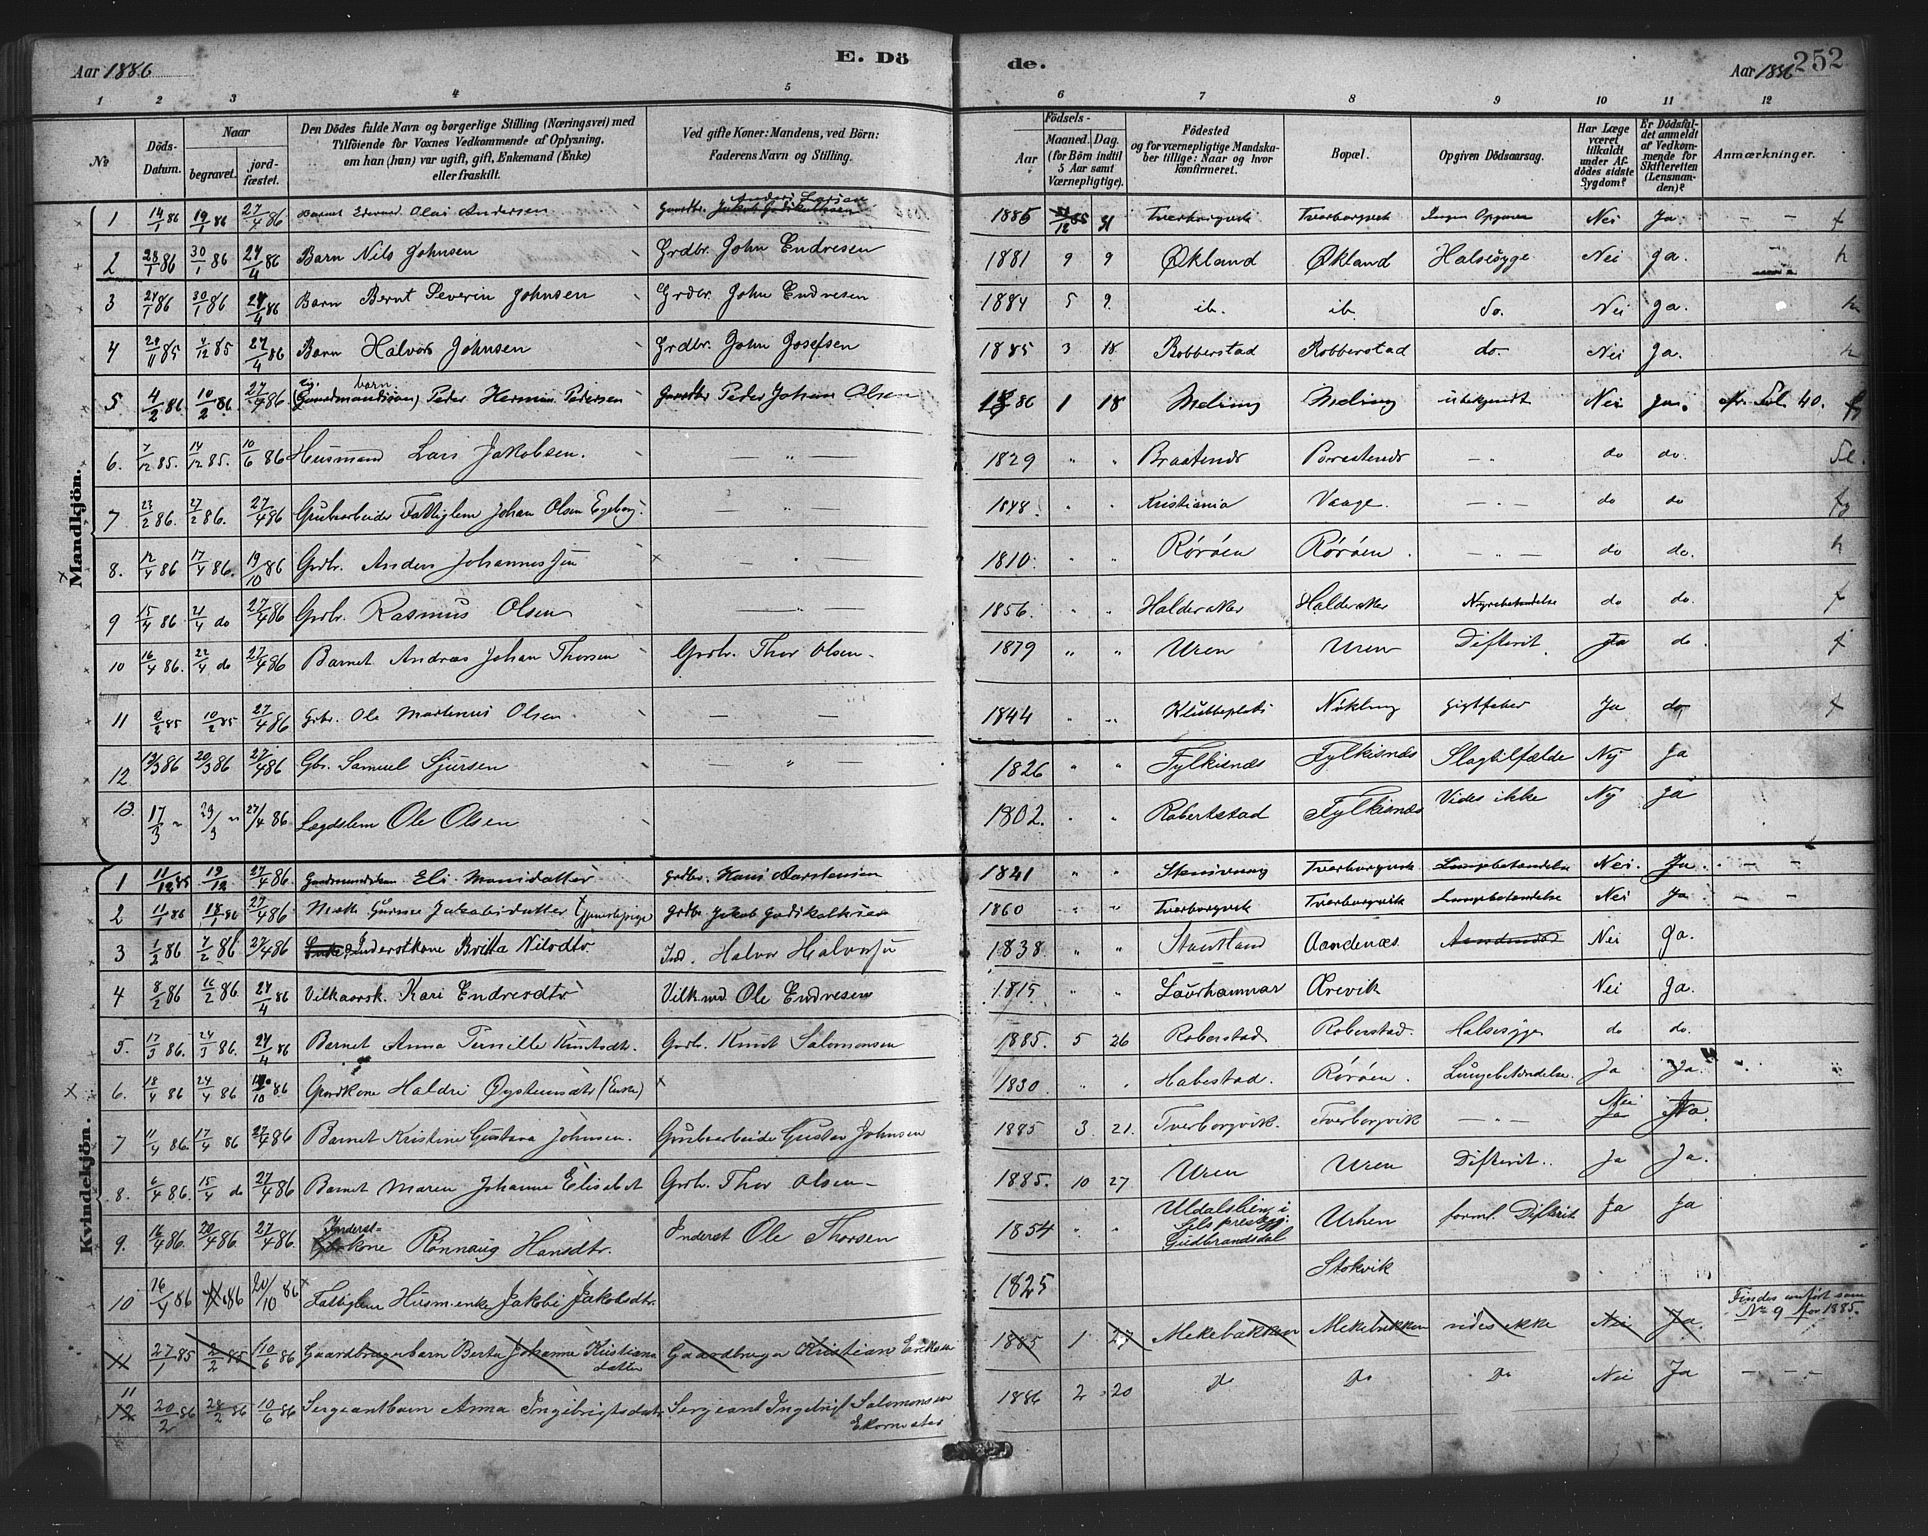 Aar 1886 E. Dö de. Aar 1886 252
1 2 3 4 5 6 7 8 9 10 11 12
No
Döds-Datum.
Naar
begravet.
jord-fæstet.
Den Dödes fulde Navn og borgerlige Stilling (Næringsvei) med
Tilföiende for Voxnes Vedkommende af Oplysning,
om han (hun) var ugift, gift, Enkemand (Enke)
eller fraskilt.
Ved gifte Koner: Mandens, ved Börn:
Faderens Navn og Stilling.
Födsels-
Aar
Maaned. Dag.
(for Börn indtil
5 Aar samt
Værnepligtige).
Födested
og for værnepligtige Mandska-
ber tillige: Naar og hvor
konfirmeret.
Bopæl.
Opgiven Dödsaarsag.
Har Læge
været
tilkaldt
under Af-
dödes sidste
Sygdom?
Er Dödsfal-
det anmeldt
af Vedkom-
mende for
Skifteretten
(Lensman-
den)?
Anmærkninger.
Mandkjön.
1 14/1 86 19/1 86 27/4 86 Barnet Edvard Olai Andersen Gaardbr. Anders Larsen 1885 31/12 85 Tverborgvik Tverborgvik Ingen Opgaven Nei Ja - - f
2 28/1 86 30/1 86 27/4 86 Barn Nils Johnsen Grdbr. John Endresen 1881 9 9 Økland Økland Halssyge Nei Ja. h
3 27/1 86 30/1 86 27/4 86 Barn Bernt Severin Johnsen Grdbr. John Endresen 1884 5 9 ib. ib. do. Nei Ja. h
4 20/11 85 4/12 85 27/4 86 Barn Halvor Johnsen Grdbr. John Josefsen 1885 3 18 Robberstad Robberstad do. Nei Ja. h
5 4/2 86 10/2 86 27/4 86 barn Peder Herman Pedersen Gaardbr Peder Johan Olsen 1886 1 18 Meling Meling ubekjendt Nei Ja. cfr. Fol. 40.
6. 7/12 85. 14/12 85. 10/6 86 Husmand Lars Jakobsen. — " — 1829 " " Braatenes Braatenes - " do do.
7 23/2 86. 27/2 86. 27/4 86 Grubearbeider Fattiglem Johan Olsen Egeberg. 1848 " " Kristiania Vaage. — " — do do
8. 12/4 86 17/4 86. 19/10 86 Grdbr. Anders Johannessen — " — 1810 " " Rørøen Rørøen. — " — do do. h
9 15/4 86 21/4 do 27/4 86 Grbr. Rasmus Olsen 1856. " " Halderaker Halderaker Nyrebetændelse do do. f
10 16/4 86. 22/4 do 27/4 86 Barnet Andreas Johan Thorsen Grdbr. Thor Olsen. 1879 " " Uren Uren Difterit. Ja do f
11 2/2 85 10/2 85 27/4 86 Grbr. Ole Martinus Olsen — — 1844 " " Klubbeplads Nikling gigtfeber Ja do f
12 13/3 86 20/3 86 27/4 86 Gbr. Samuel Sjursen — " — 1826 " " Fylkisnæs Fylkisnæs Slagtilfælde Nej Ja
13. 17/3 " 29/3 " 27/4 86 Lægdslem Ole Olsen 1802. " " Robertstad Fylkisnæs Vides ikke Nej Ja
Kvindekjön.
1 11/12 85 19/12 27/4 86 Gaardmandskone Eli Monsdatter Grdbr. Hans Aarstensen 1821 " " Tverborgvik Lungebetændelse Nei. Ja. - -
2 11/1 86 18/1 86 27/4 86 Mette Gurine Jakobsdatter Grdbr Jakob Godskalksen 1860 " " Tverborgvik Tverborgvik Lungebetændelse Nei Ja - -
3 1/2 86 7/2 86 27/4 86 Inderstkone Britta Nilsdtr Ind. Halvor Halvorsen 1838 " " Stautland Aandenæs Nei Ja.
4 8/2 86 16/2 86 27/4 86 Vilkaarsk. Kari Endresdtr Vilkmd Ole Endresen 1815 " " Laurhammar Ærevik Nei Ja.
5. 17/3 86. 24/3 86. 27/4 86 Barnet Anna Pernille Knutsdtr. Grdbr. Knut Salomonsen 1885. 5 26 Roberstad Roberstad. Halssyge do do.
6. 18/4 86 24/4 86 19/10 86 Gaardkone Haldri Øysteinsdtr (Enke) 1830. " " Habestad. Rørøen. Lungebetændelse. Ja Ja.
7 11/4 86. 17/4 86 27/4 86 Barnet Kristine Gustava Johnsen. Grubearbeider Gustav Johnsen 1885 3 21. Tverborgvik. Tverborgvik — " — Nei Ja.
8. 6/4 86. 15/4 do 27/4 86 Barnet Maren Johanne Elisabet Grdbr. Thor Olsen— 1885. 10 27 Uren Uren Difterit. Ja Ja.
9. 16/4 86. 20/4 86. 27/4 86. Inderst-kone Rønnaug Hansdtr. Inderst Ole Thorsen 1854 " " Uldalslien i Gudbrandsdal Urhen forml. Difterit Ja Ja
10 16/4 86 86 20/10 86 Fattiglem Husm. enke Jakobi Jakobsdtr. 1825 Stokvik
11 27/1 85 2/2 85 10/6 86 Gaardbrugerbarn Berta Johanna Kristiansdatter Gaardbruger Kristian Eriksen 1885 1 27 Mekebakken Mekebakken vides ikke Nei Ja. Findes anført som No 9 for 1885.
11 12 20/2 86 28/2 86 10/6 86 Sergeantbarn Anna Ingebrigtsdatr Sergeant Ingebrigt Salomonsen Ekornestad 1886 2 20 Do Do Do Nei Ja - - -